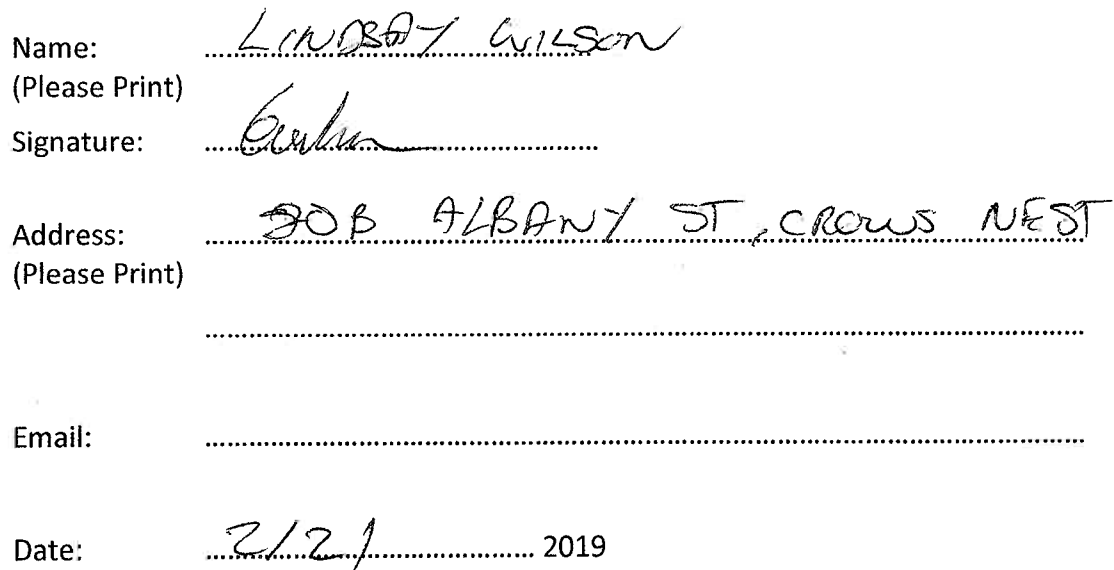 Name: LINDSAY WILSON
(Please Print)
Signature:
Address: 30B ALBANY ST, CROWS NEST
(Please Print)
Email:
Date: 2/2/ 2019